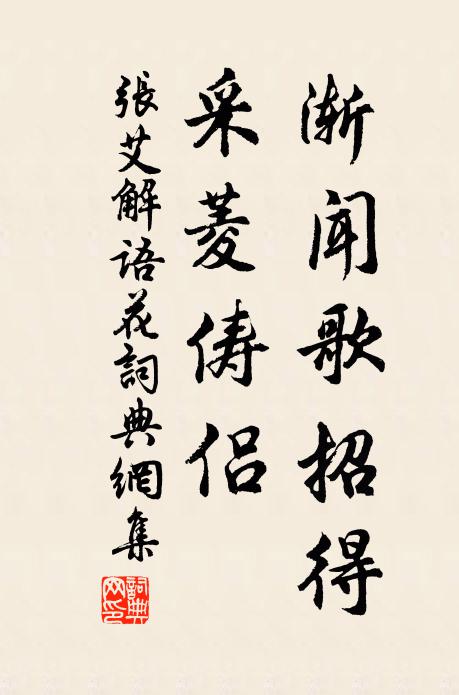 渐闻歌招得
采菱俦侣
張艾解语花詞典網集
詞典网印